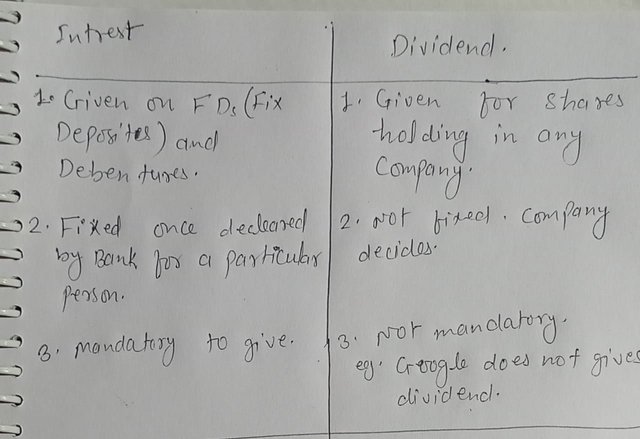 Intrest
Dividend.
1. Given on FDs (Fix
Deposites) and
Debentures.
1. Given for shares
holding in any
Company.
2. Fixed once decleared
by Bank for a particular
person.
2. Not fixed. Company
decides.
3. mandatory to give.
3. Not mandatory.
eg. Google does not gives
dividend.